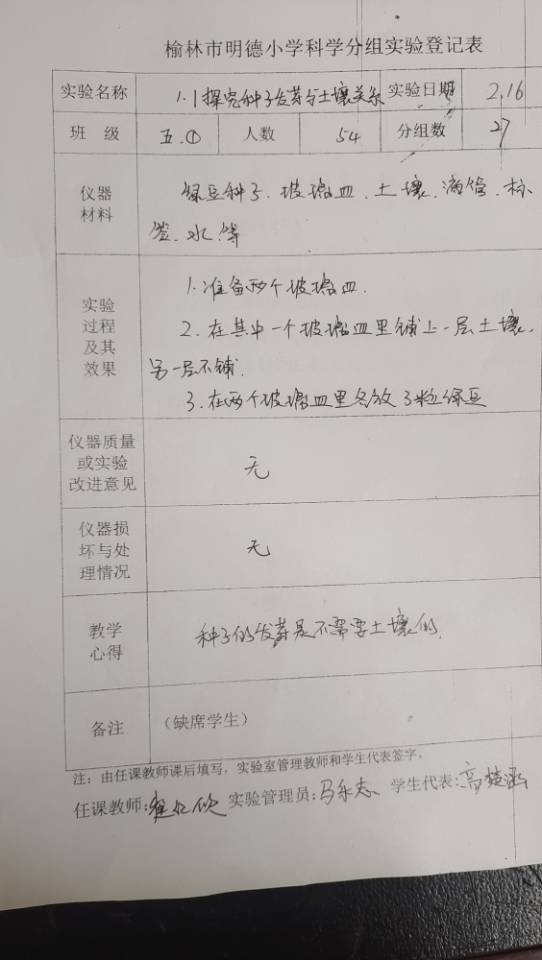 榆林市明德小学科学分组实验登记表
实验名称 1.1探究种子发芽与土壤关系 实验日期 2.16
班 级 五.① 人数 54 分组数 27
仪器
材料
绿豆种子、玻璃皿、土壤、滴管、标
签、水、等
实验
过程
及其
效果
1.准备两个玻璃皿.
2.在其中一个玻璃皿里铺上一层土壤,
另一层不铺.
3.在两个玻璃皿里各放3粒绿豆
仪器质量
或实验
改进意见
无
仪器损
坏与处
理情况
无
教学
心得
种子的发芽是不需要土壤的.
备注 (缺席学生)
注:由任课教师课后填写,实验室管理教师和学生代表签字。
任课教师: 实验管理员:马乐志 学生代表:高